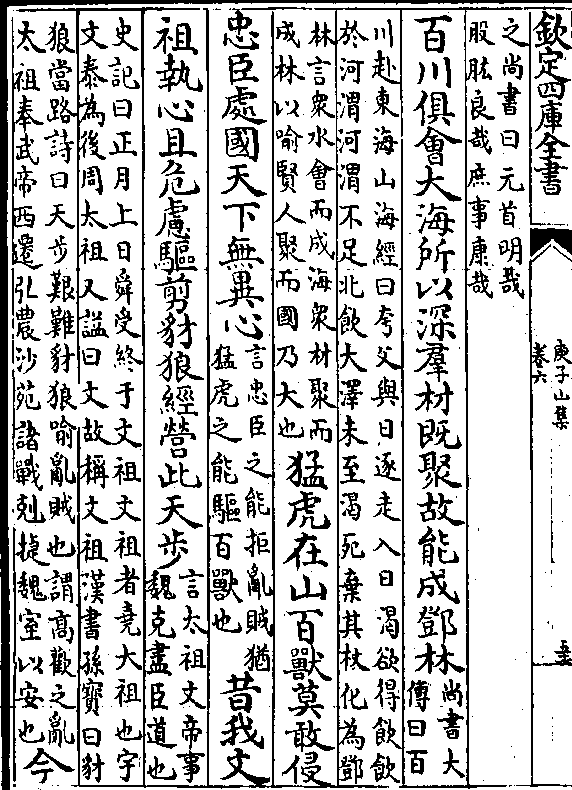 欽定四庫全書
庾子山集
卷六
五十五
之尚書曰元首明哉
股肱良哉庶事康哉
百川俱會大海所以深羣材既聚故能成鄧林
尚書大
傳曰百
川赴東海山海經曰夸父與日逐走入日渴欲得飲飲
於河渭河渭不足北飲大澤未至渴死棄其杖化為鄧
林言衆水會而成海衆材聚而
成林以喻賢人聚而國乃大也
猛虎在山百獸莫敢侵
忠臣處國天下無異心
言忠臣之能拒亂賊猶
猛虎之能驅百獸也
昔我文
祖執心且危慮驅剪豺狼經營此天步
言太祖文帝事
魏克盡臣道也
史記曰正月上日舜受終于文祖文祖者堯大祖也宇
文泰為後周太祖又謚曰文故稱文祖漢書孫寶曰豺
狼當路詩曰天步艱難豺狼喻亂賊也謂髙歡之亂
太祖奉武帝西遷弘農沙苑諸戰剋捷魏室以安也
今